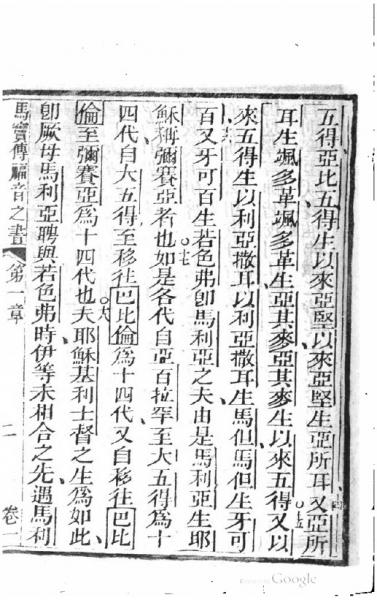 五得亞比五得生以來亞堅以來亞堅生亞所耳十四又亞所
耳生颯多革颯多革生亞其麥亞其麥生以來五得十五又以
來五得生以利亞撒耳以利亞撒耳生馬但馬但生牙可
百十六又牙可百生若色弗卽馬利亞之夫由是馬利亞生耶
穌稱彌賽亞者也十七如是各代自亞百拉罕至大五得為十
四代自大五得至移往巴比倫為十四代又自移往巴比
倫至彌賽亞為十四代也十八夫耶穌基利士督之生為如此
卽厥母馬利亞聘與若色弗時伊等未相合之先遇馬利
馬竇傳福音之書 第一章 二 卷一
Google